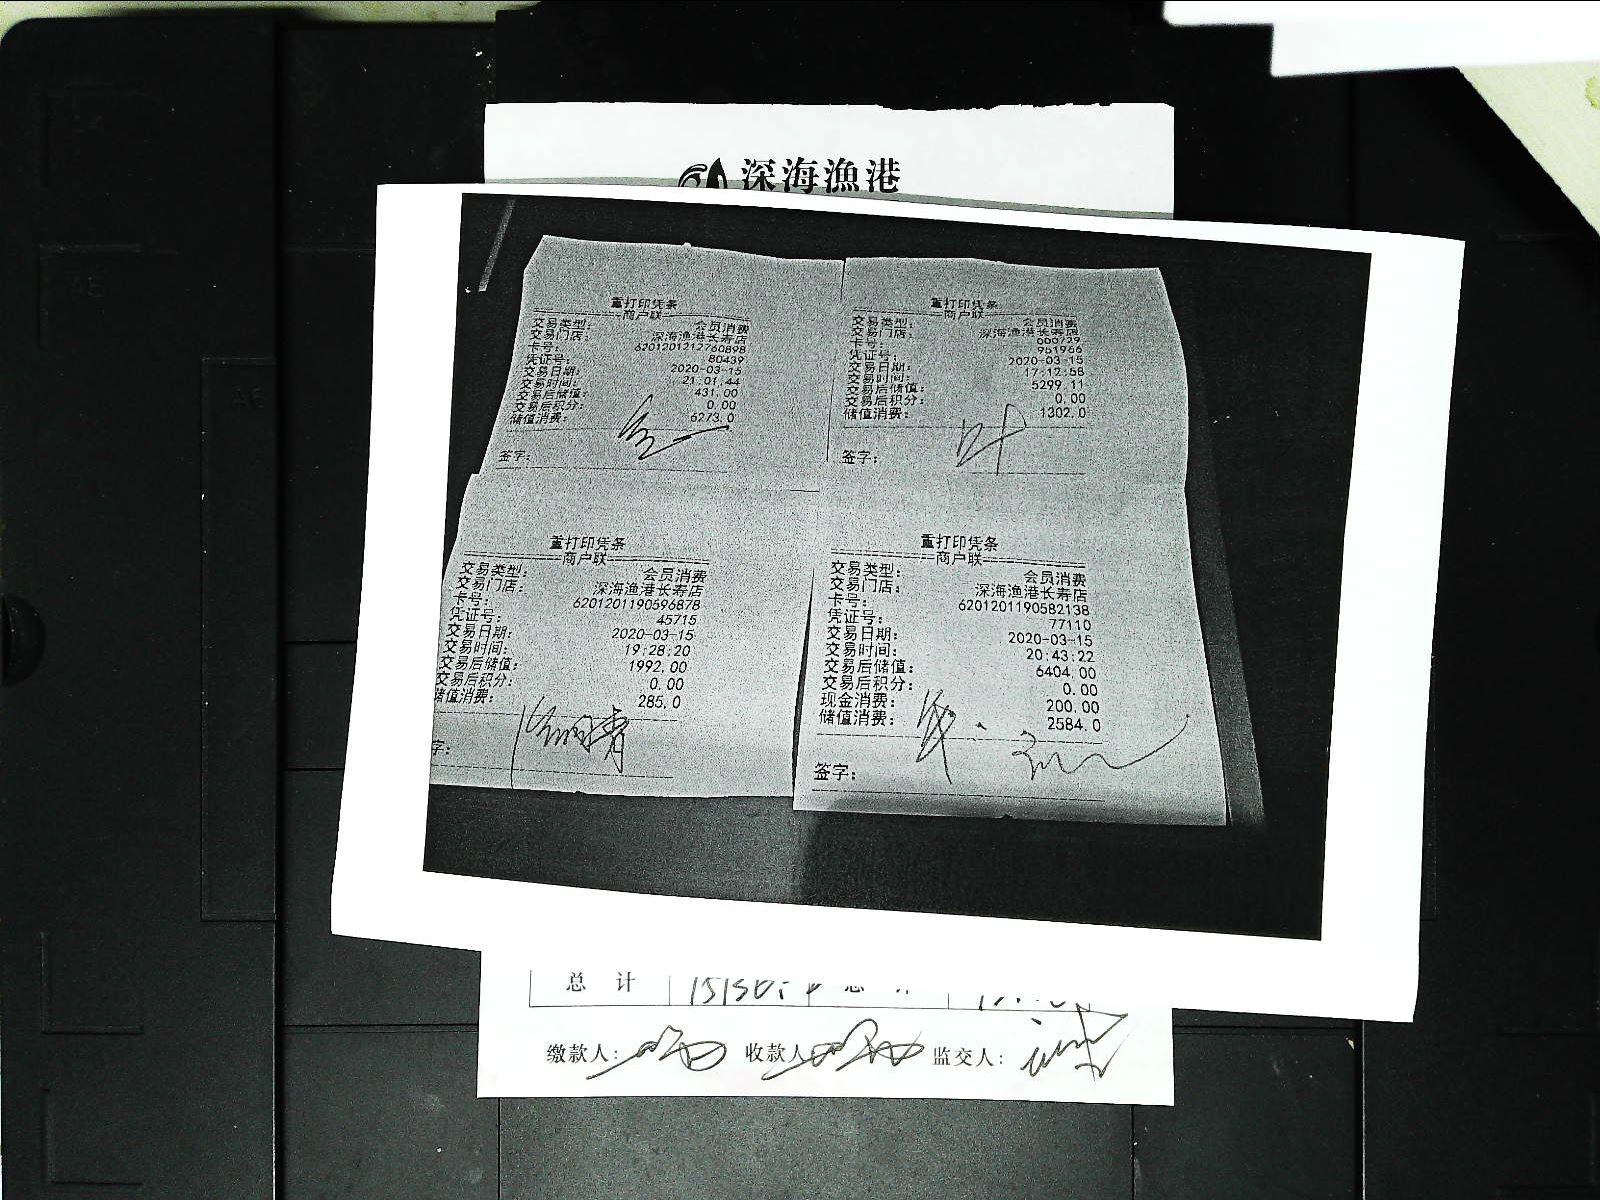 深海漁港
重打印凭条
商户联
交易类型： 会员消费
交易门店： 深海渔港长寿店
卡号： 6201201212760898
凭证号： 80439
交易日期： 2020-03-15
交易时间： 21:01:44
交易后储值： 431.00
交易后积分： 0.00
储值消费： 6273.0
签字：
重打印凭条
商户联
交易类型： 会员消费
交易门店： 深海渔港长寿店
卡号： 000729
凭证号： 951966
交易日期： 2020-03-15
交易时间： 17:12:58
交易后储值： 5299.11
交易后积分： 0.00
储值消费： 1302.0
签字： 叶
重打印凭条
商户联
交易类型： 会员消费
交易门店： 深海渔港长寿店
卡号： 6201201190596878
凭证号： 45715
交易日期： 2020-03-15
交易时间： 19:28:20
交易后储值： 1992.00
交易后积分： 0.00
储值消费： 285.0
字：
重打印凭条
商户联
交易类型： 会员消费
交易门店： 深海渔港长寿店
卡号： 6201201190582138
凭证号： 77110
交易日期： 2020-03-15
交易时间： 20:43:22
交易后储值： 6404.00
交易后积分： 0.00
现金消费： 200.00
储值消费： 2584.0
签字：
总 计
缴款人： 收款人 监交人：